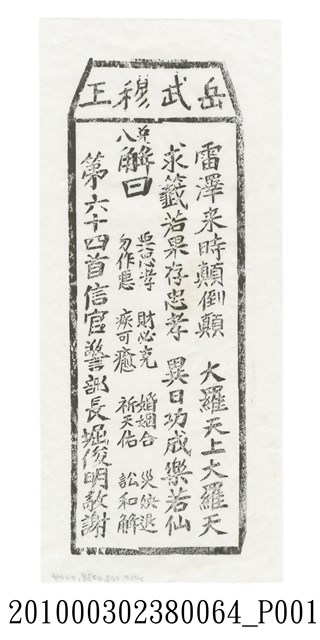 岳武穆王
雷澤来時顛倒顛 大羅天上大羅天
求籤若果存忠孝 異日功成樂若仙
解曰 思忠孝 財必克 婚姻合 災侯退
勿作惡 疾可癒 祈天佑 訟和解
第六十四首信官警部長堀俊明敬謝
201000302380064_P001